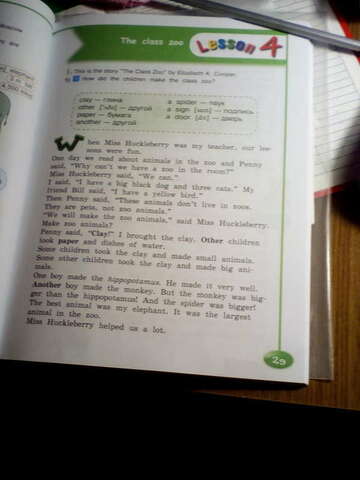 The class zoo
Lesson 4
1. This is the story "The Class Zoo" by Elizabeth K. Cooper.
How did the children make the class zoo?
clay — глина
other [ˈʌðə] — другой
paper — бумага
another — другой
a spider — паук
a sign [saɪn] — подпись
a door [dɔ:] — дверь
When Miss Huckleberry was my teacher, our lessons were fun.
One day we read about animals in the zoo and Penny
said, "Why can't we have a zoo in the room?"
Miss Huckleberry said, "We can."
I said, "I have a big black dog and three cats." My
friend Bill said, "I have a yellow bird."
Then Penny said, "These animals don't live in zoos.
They are pets, not zoo animals."
"We will make the zoo animals," said Miss Huckleberry.
Make zoo animals?
Penny said, "Clay!" I brought the clay. Other children
took paper and dishes of water.
Some children took the clay and made small animals.
Some other children took the clay and made big ani-
mals.
One boy made the hippopotamus. He made it very well.
Another boy made the monkey. But the monkey was big-
ger than the hippopotamus! And the spider was bigger!
The best animal was my elephant. It was the largest
animal in the zoo.
Miss Huckleberry helped us a lot.
29